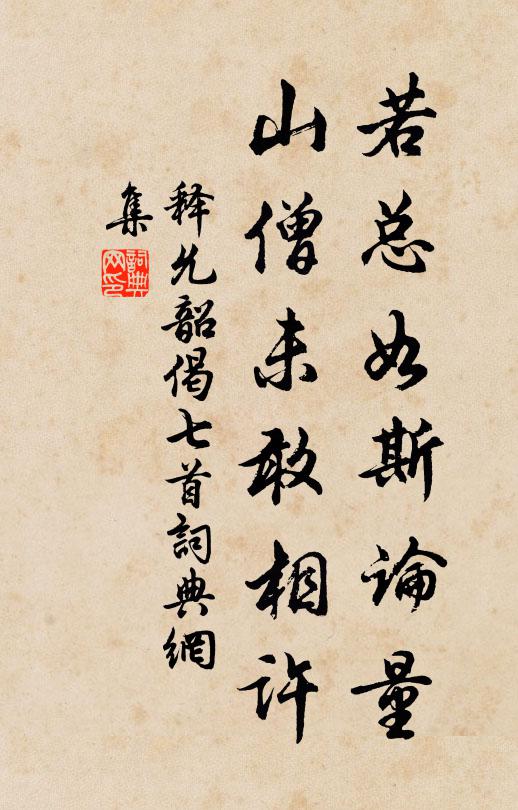 若总如斯論量
山僧未敢相许
释允韶偈七首詞典網
集
詞典網印